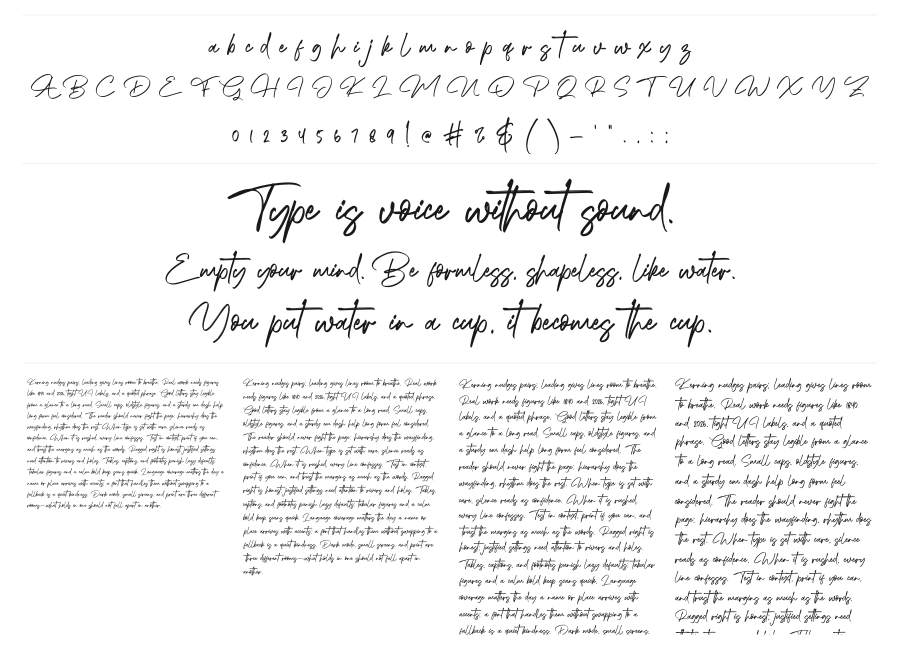 a b c d e f g h i j k l m n o p q r s t u v w x y z
A B C D E F G H I J K L M N O P Q R S T U V W X Y Z
0 1 2 3 4 5 6 7 8 9 ! @ # % & ( ) – ' " . , ; :
Type is voice without sound.
Empty your mind. Be formless, shapeless, like water.
You put water in a cup, it becomes the cup.
Kerning nudges pairs; leading gives lines room to breathe. Real work needs figures
like 1890 and 2026, tight UI labels, and a quoted phrase. Good letters stay legible
from a glance to a long read. Small caps, oldstyle figures, and a sturdy em dash help
long form feel considered. The reader should never fight the page; hierarchy does the
wayfinding, rhythm does the rest. When type is set with care, silence reads as
confidence. When it is rushed, every line confesses. Test in context, print if you can,
and trust the margins as much as the words. Ragged right is honest; justified settings
need attention to rivers and holes. Tables, captions, and footnotes punish lazy defaults;
tabular figures and a calm bold keep scans quick. Language coverage matters the day a
name or place arrives with accents; a font that handles them without swapping to a
fallback is a quiet kindness. Dark mode, small screens, and print are three different
rooms—what holds in one should not fall apart in another.
Kerning nudges pairs; leading gives lines room to breathe. Real work
needs figures like 1890 and 2026, tight UI labels, and a quoted phrase.
Good letters stay legible from a glance to a long read. Small caps,
oldstyle figures, and a sturdy em dash help long form feel considered.
The reader should never fight the page; hierarchy does the wayfinding,
rhythm does the rest. When type is set with care, silence reads as
confidence. When it is rushed, every line confesses. Test in context,
print if you can, and trust the margins as much as the words. Ragged
right is honest; justified settings need attention to rivers and holes. Tables,
captions, and footnotes punish lazy defaults; tabular figures and a calm
bold keep scans quick. Language coverage matters the day a name or
place arrives with accents; a font that handles them without swapping to a
fallback is a quiet kindness. Dark mode, small screens, and print are
three different rooms—what holds in one should not fall apart in
another.
Kerning nudges pairs; leading gives lines room to breathe.
Real work needs figures like 1890 and 2026, tight UI
labels, and a quoted phrase. Good letters stay legible from
a glance to a long read. Small caps, oldstyle figures, and
a sturdy em dash help long form feel considered. The
reader should never fight the page; hierarchy does the
wayfinding, rhythm does the rest. When type is set with
care, silence reads as confidence. When it is rushed,
every line confesses. Test in context, print if you can, and
trust the margins as much as the words. Ragged right is
honest; justified settings need attention to rivers and holes.
Tables, captions, and footnotes punish lazy defaults; tabular
figures and a calm bold keep scans quick. Language
coverage matters the day a name or place arrives with
accents; a font that handles them without swapping to a
fallback is a quiet kindness. Dark mode, small screens,
Kerning nudges pairs; leading gives lines room
to breathe. Real work needs figures like 1890
and 2026, tight UI labels, and a quoted
phrase. Good letters stay legible from a glance
to a long read. Small caps, oldstyle figures,
and a sturdy em dash help long form feel
considered. The reader should never fight the
page; hierarchy does the wayfinding, rhythm does
the rest. When type is set with care, silence
reads as confidence. When it is rushed, every
line confesses. Test in context, print if you can,
and trust the margins as much as the words.
Ragged right is honest; justified settings need